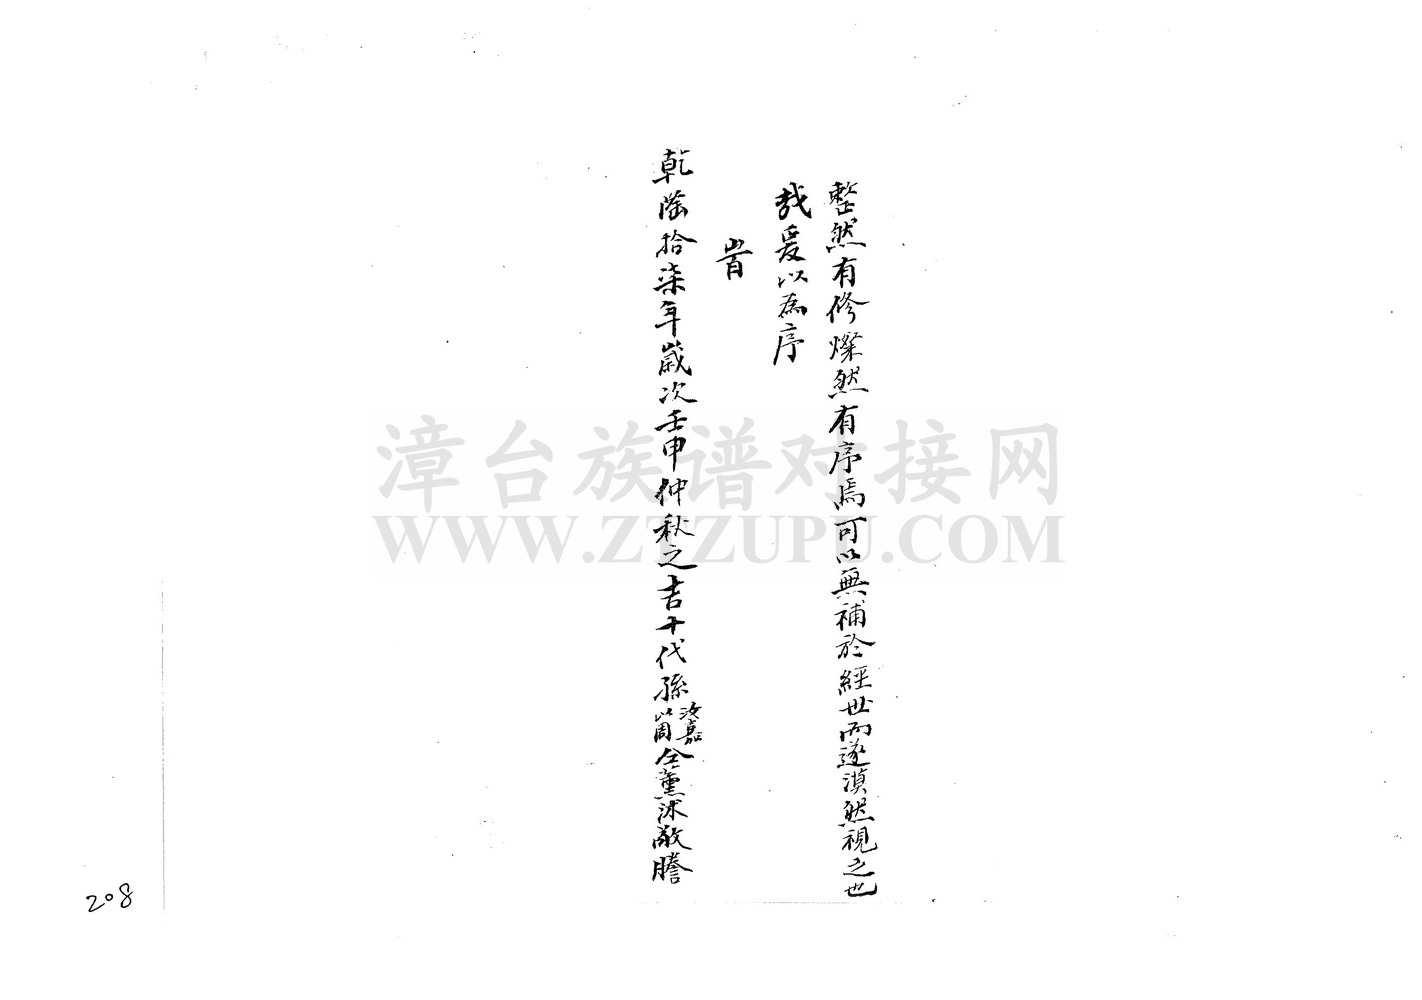 整然有修燦然有序焉可以無補於經世而遂漠然視之也
哉爰以為序
旹
乾隆拾柒年歲次壬申仲秋之吉十代孫汝嘉仝薰沐敬謄
漳台族谱对接网
WWW.ZTZUPU.COM
208